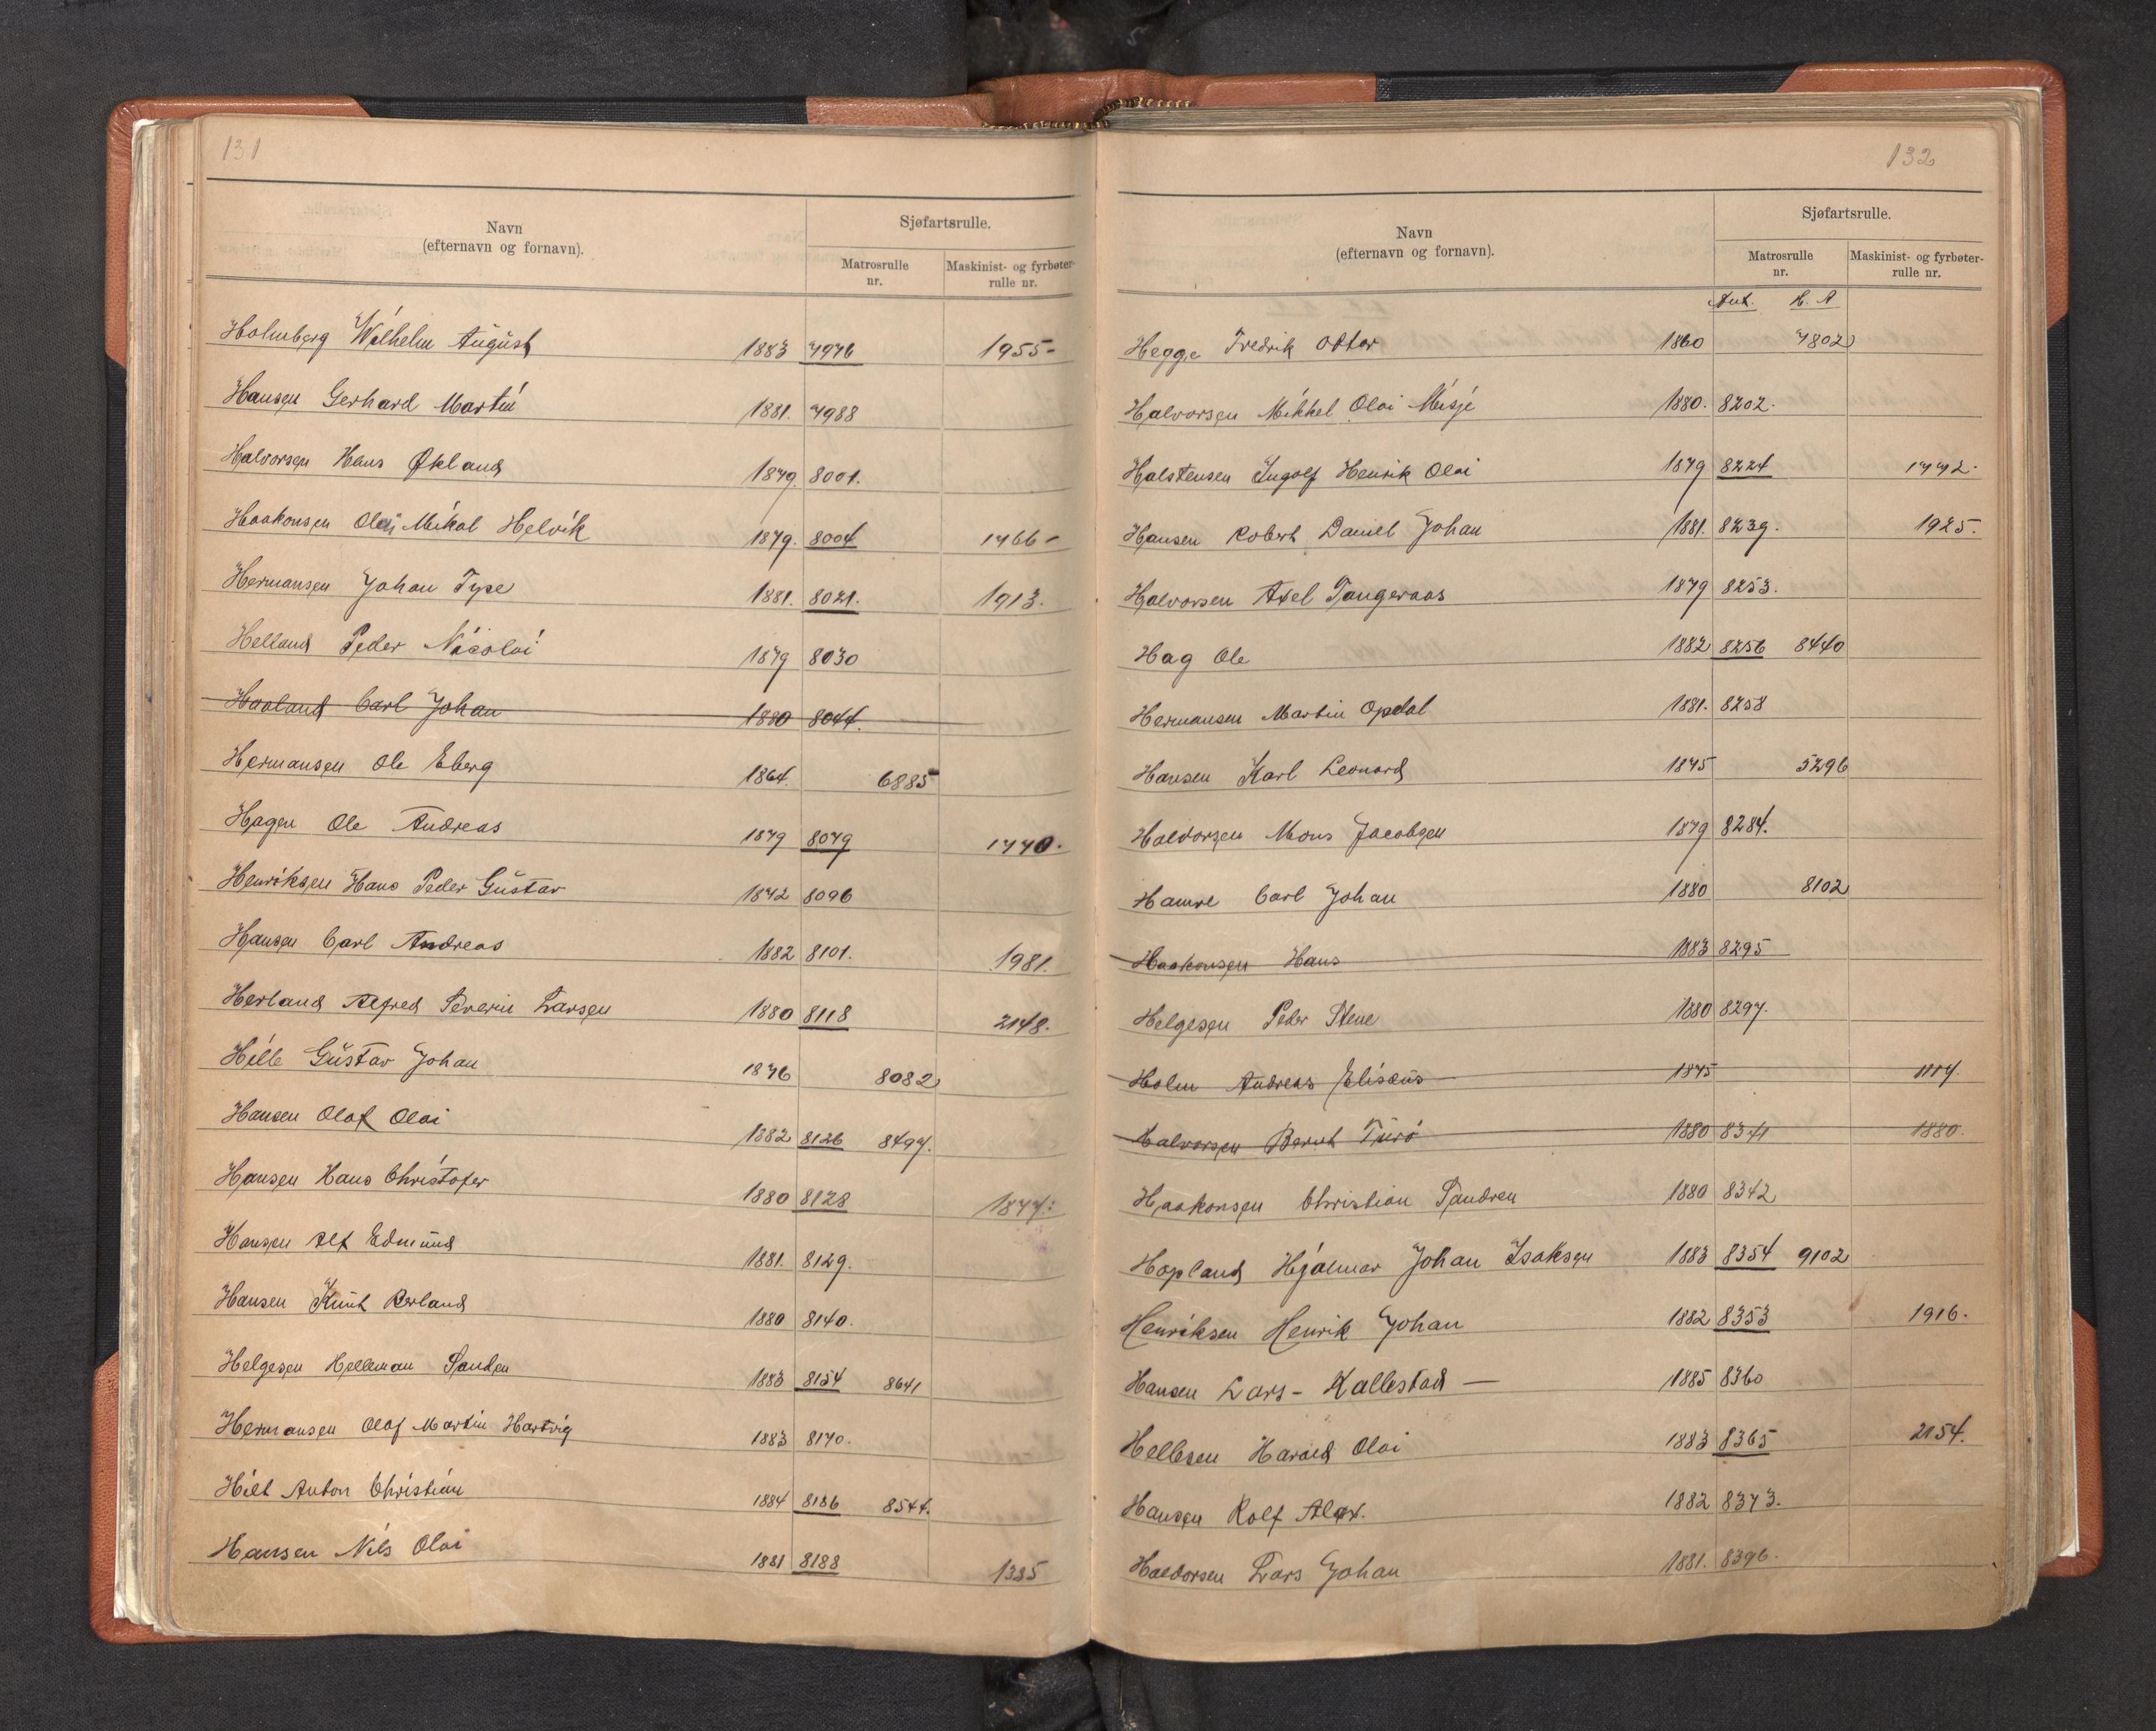 131
Navn
(efternavn og fornavn).
Sjøfartsrulle.
Matrosrulle
nr.
Maskinist- og fyrbøter-
rulle nr.
Holmberg Wilhelm August 1883 7976 1955-
Hansen Gerhard Martin 1881. 7988
Halvorsen Hans Økland 1879. 8001.
Haakonsen Olai Mikal Helvik 1879. 8004 1766-
Hermansen Johan Tyse 1881. 8021. 1913.
Helland Peder Nicolai 1879 8030
Haaland Carl Johan 1880 8044.
Hermansen Ole Eberg 1864. 6885
Hagen Ole Andreas 1879 8079 1770.
Henriksen Hans Peder Gustav 1872 8096
Hansen Carl Andreas 1882 8101. 1981.
Herland Alfred Severin Larsen 1880 8118 2148.
Hille Gustav Johan 1876 8082
Hansen Olaf Olai 1882 8126 8497.
Hansen Hans Christofer 1880 8128 1877.
Hansen Alf Edmund 1881. 8129.
Hansen Knut Rerland 1880 8140.
Helgesen Helleman Sanden 1883 8154 8641
Hermansen Olaf Martin Hartvig 1883 8170.
Hilt Anton Christian 1884 8186 8544.
Hansen Nils Olai 1881 8188 1385
132
Navn
(efternavn og fornavn).
Sjøfartsrulle.
Matrosrulle
nr.
Maskinist- og fyrbøter-
rulle nr.
H. A
Hegge Fredrik Otter 1860 7802
Halvorsen Mikkel Olai Misje 1880. 8202.
Halstensen Ingolf Henrik Olai 1879 8224 1772.
Hansen Robert Daniel Johan 1881. 8239. 1925.
Halvorsen Axel Tangeraas 1879 8253.
Hag Ole 1882 8256 8440
Hermansen Martin Opdal 1881. 8258
Hansen Karl Leonard 1875 5296
Haldorsen Mons Jacobsen 1879 8284.
Hamre Carl Johan 1880 8102
Haakonsen Hans 1883 8295
Helgesen Peder Stene 1880 8297.
Holm Andreas Elisæus 1875 1117.
Halvorsen Bernt Turö 1880 8341 1880.
Haakonsen Christian Sandven 1880 8342
Hopland Hjalmar Johan Isaksen 1883 8354 9102
Henriksen Henrik Johan 1882 8353 1916.
Hansen Lars - Kallestad — 1885 8360
Hellesen Harald Olai 1883 8365 2154.
Hansen Rolf Alex. 1882 8373.
Haldorsen Lars Johan 1881. 8396.